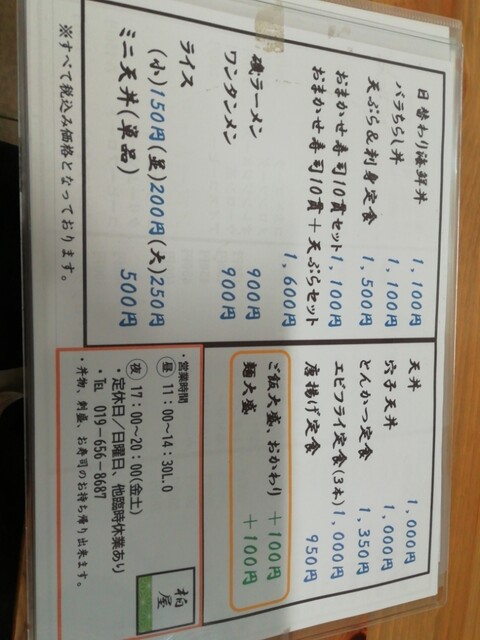 日替わり海鮮丼 1,100円
バラちらし丼 1,100円
天ぷら&刺身定食 1,500円
おまかせ寿司10貫セット 1,100円
おまかせ寿司10貫+天ぷらセット
1,600円
磯ラーメン 900円
ワンタンメン 900円
ライス
(小)150円(並)200円(大)250円
ミニ天丼(単品) 500円
※すべて税込み価格となっております。
天丼 1,000円
穴子天丼 1,000円
とんかつ定食 1,350円
エビフライ定食(3本)1,000円
唐揚げ定食 950円
ご飯大盛、おかわり +100円
麺大盛 +100円
・営業時間
昼 11:00~14:30L.O
夜 17:00~20:00(金土)
・定休日/日曜日、他臨時休業あり
・Tel 019-656-8687
・丼物、刺盛、お寿司のお持ち帰り出来ます。
柏屋